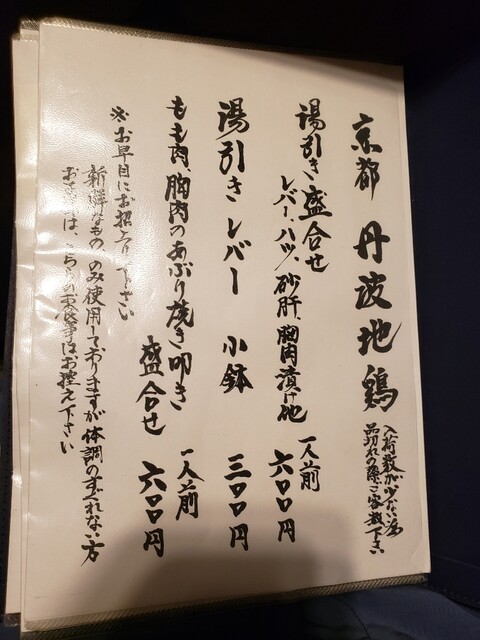 京都 丹波地鶏
入荷数が少ない為
品切れの際ご容赦下さい
湯引き盛合せ
レバー、ハツ、砂肝、胸肉漬け地
一人前
六〇〇円
湯引きレバー 小鉢 三〇〇円
もも肉、胸肉のあぶり焼き叩き
盛合せ
一人前
六〇〇円
※お早目にお招上り下さい
新鮮なもののみ使用しておりますが体調のすぐれない方
は、こちらのお食事はお控え下さい